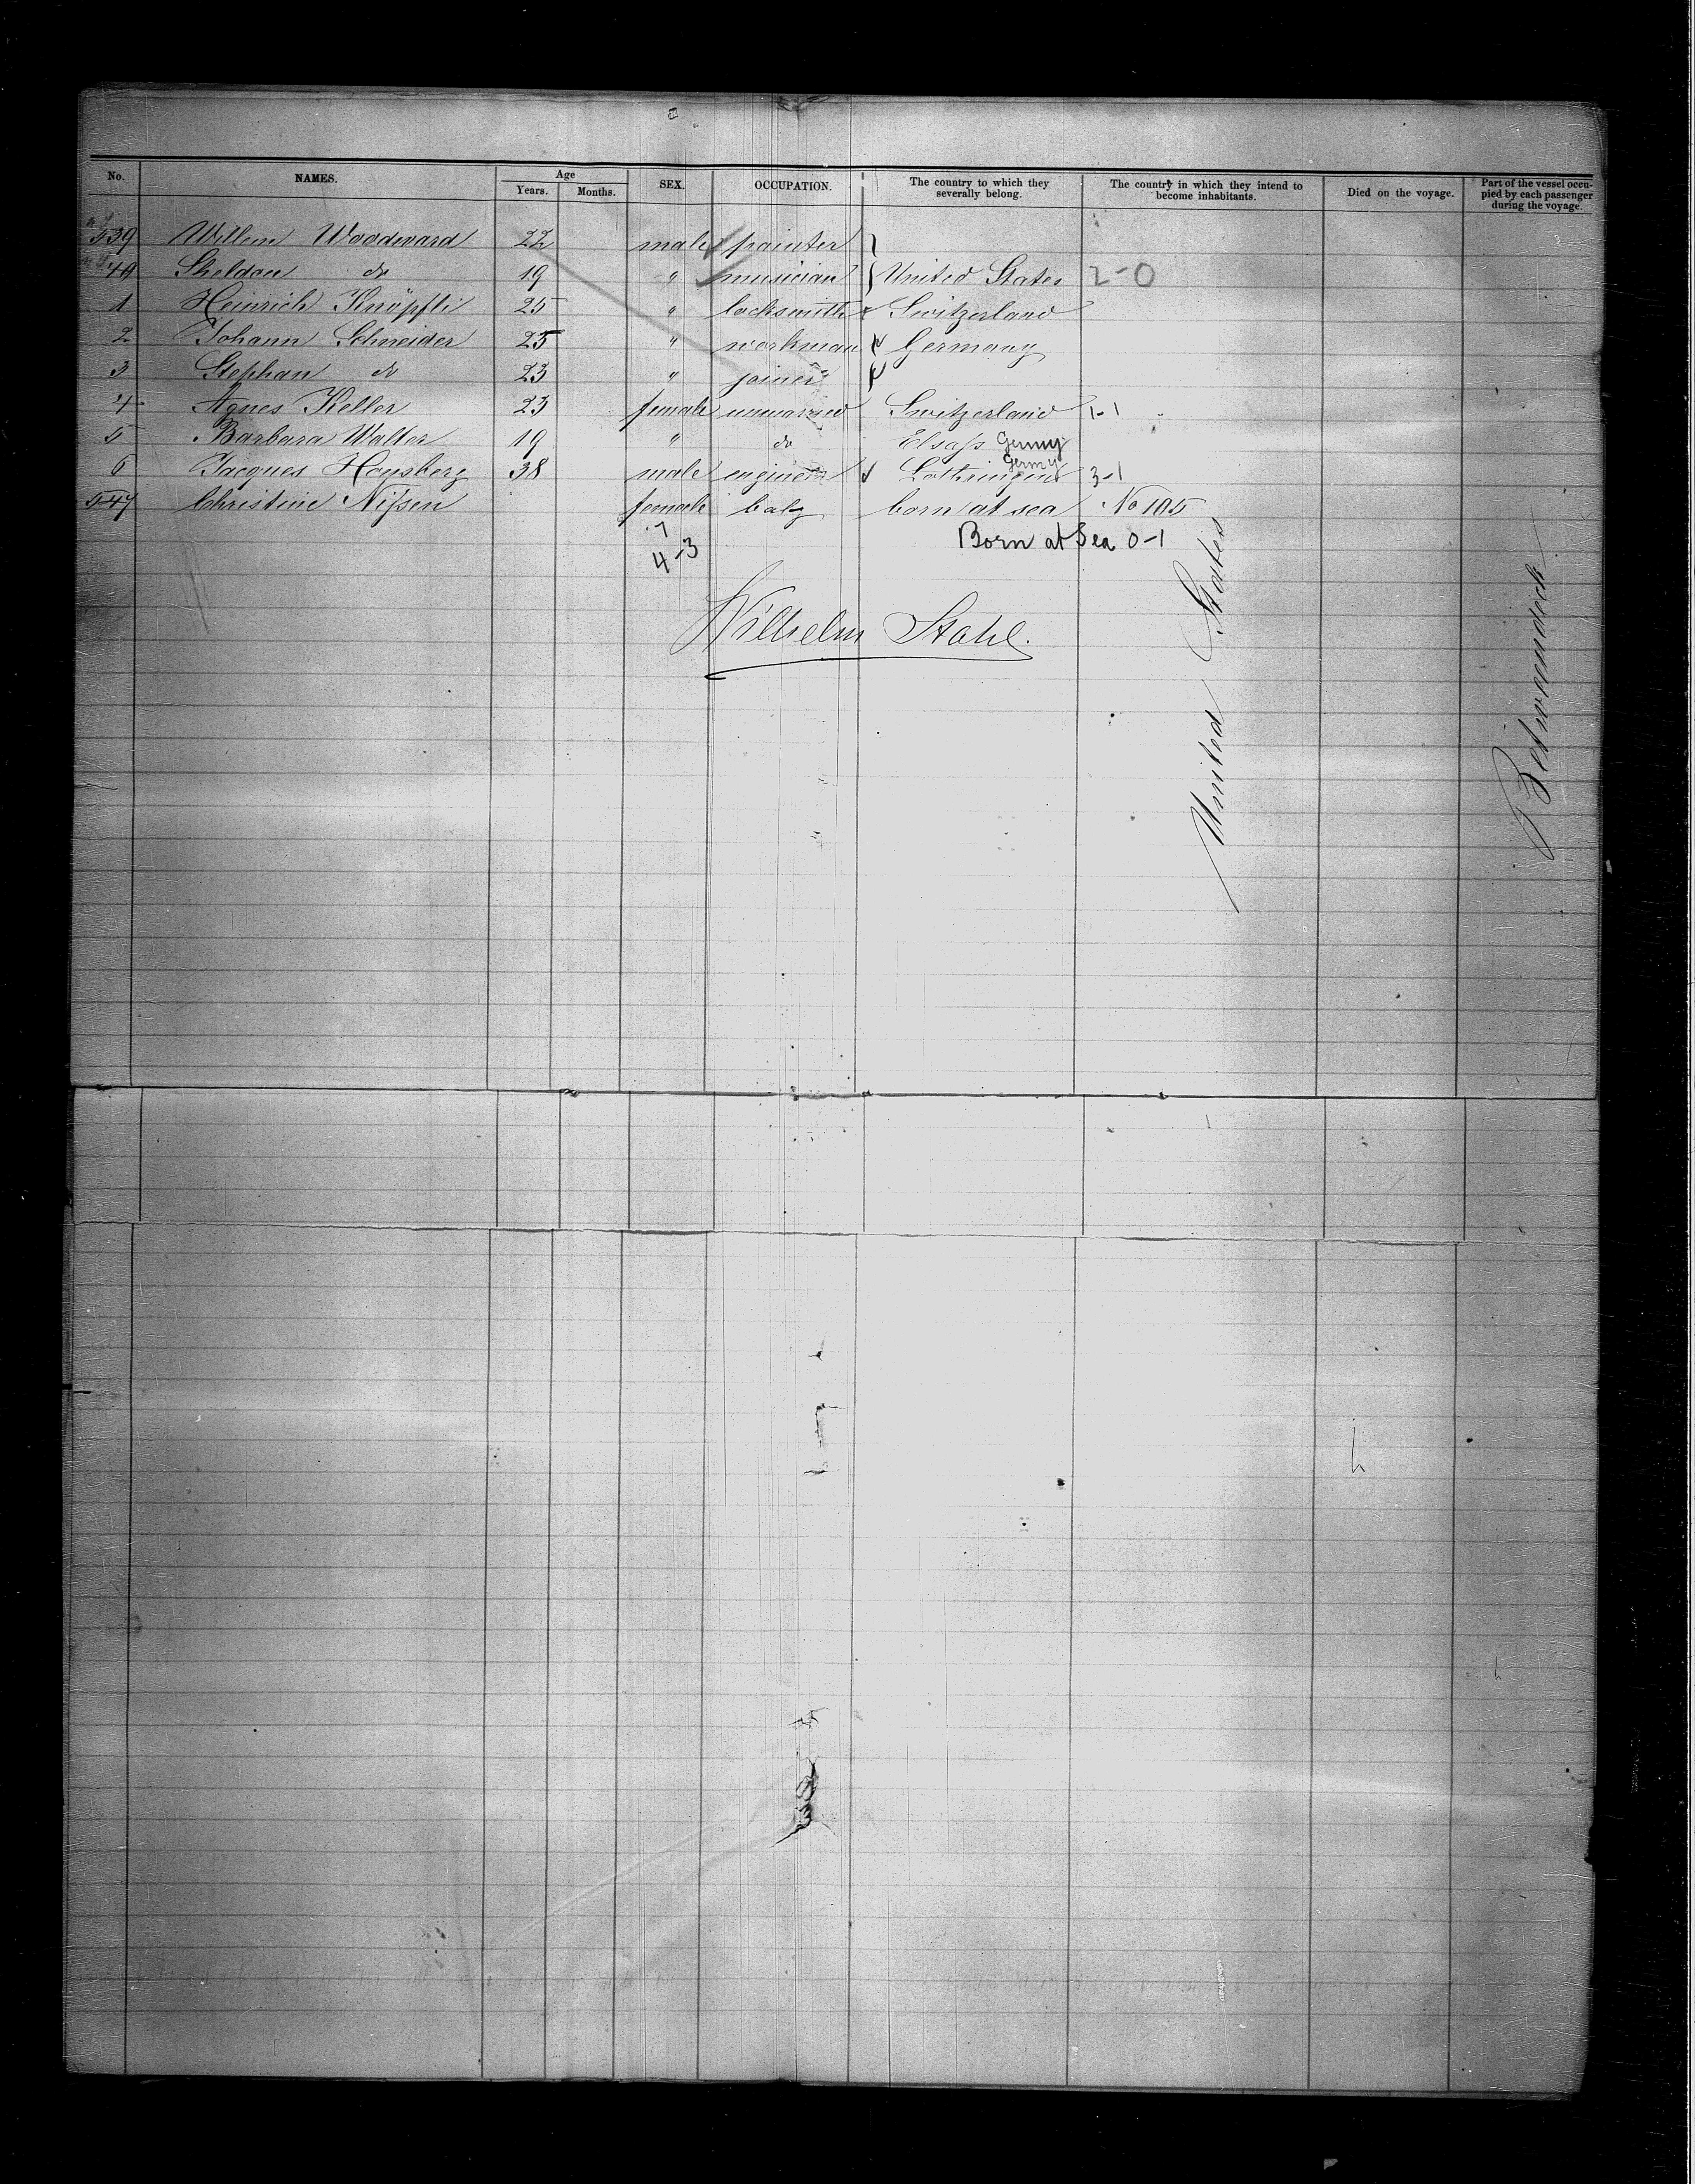 No. NAMES. Age Years. Months. SEX. OCCUPATION. The country to which they severally belong. The country in which they intend to become inhabitants. Died on the voyage. Part of the vessel occupied by each passenger during the voyage.
539 Willem Woodward 22 male painter }
40 Sheldon do 19 " musician } United States 2-0
1 Heinrich Knöpfli 25 " locksmith Switzerland
2 Johann Schneider 25 " workman Germany
3 Stephan do 23 " joiner
4 Agnes Keller 23 female unmarried Switzerland 1-1
5 Barbara Walter 19 " do Elsass Germy
6 Jacques Honsberg 38 male engineer Lothringen Germy 3-1
547 Christine Nissen female baby born at sea No 105
Born at Sea 0-1
7
4-3
Wilhelm Stahl.
United States
Betweendeck